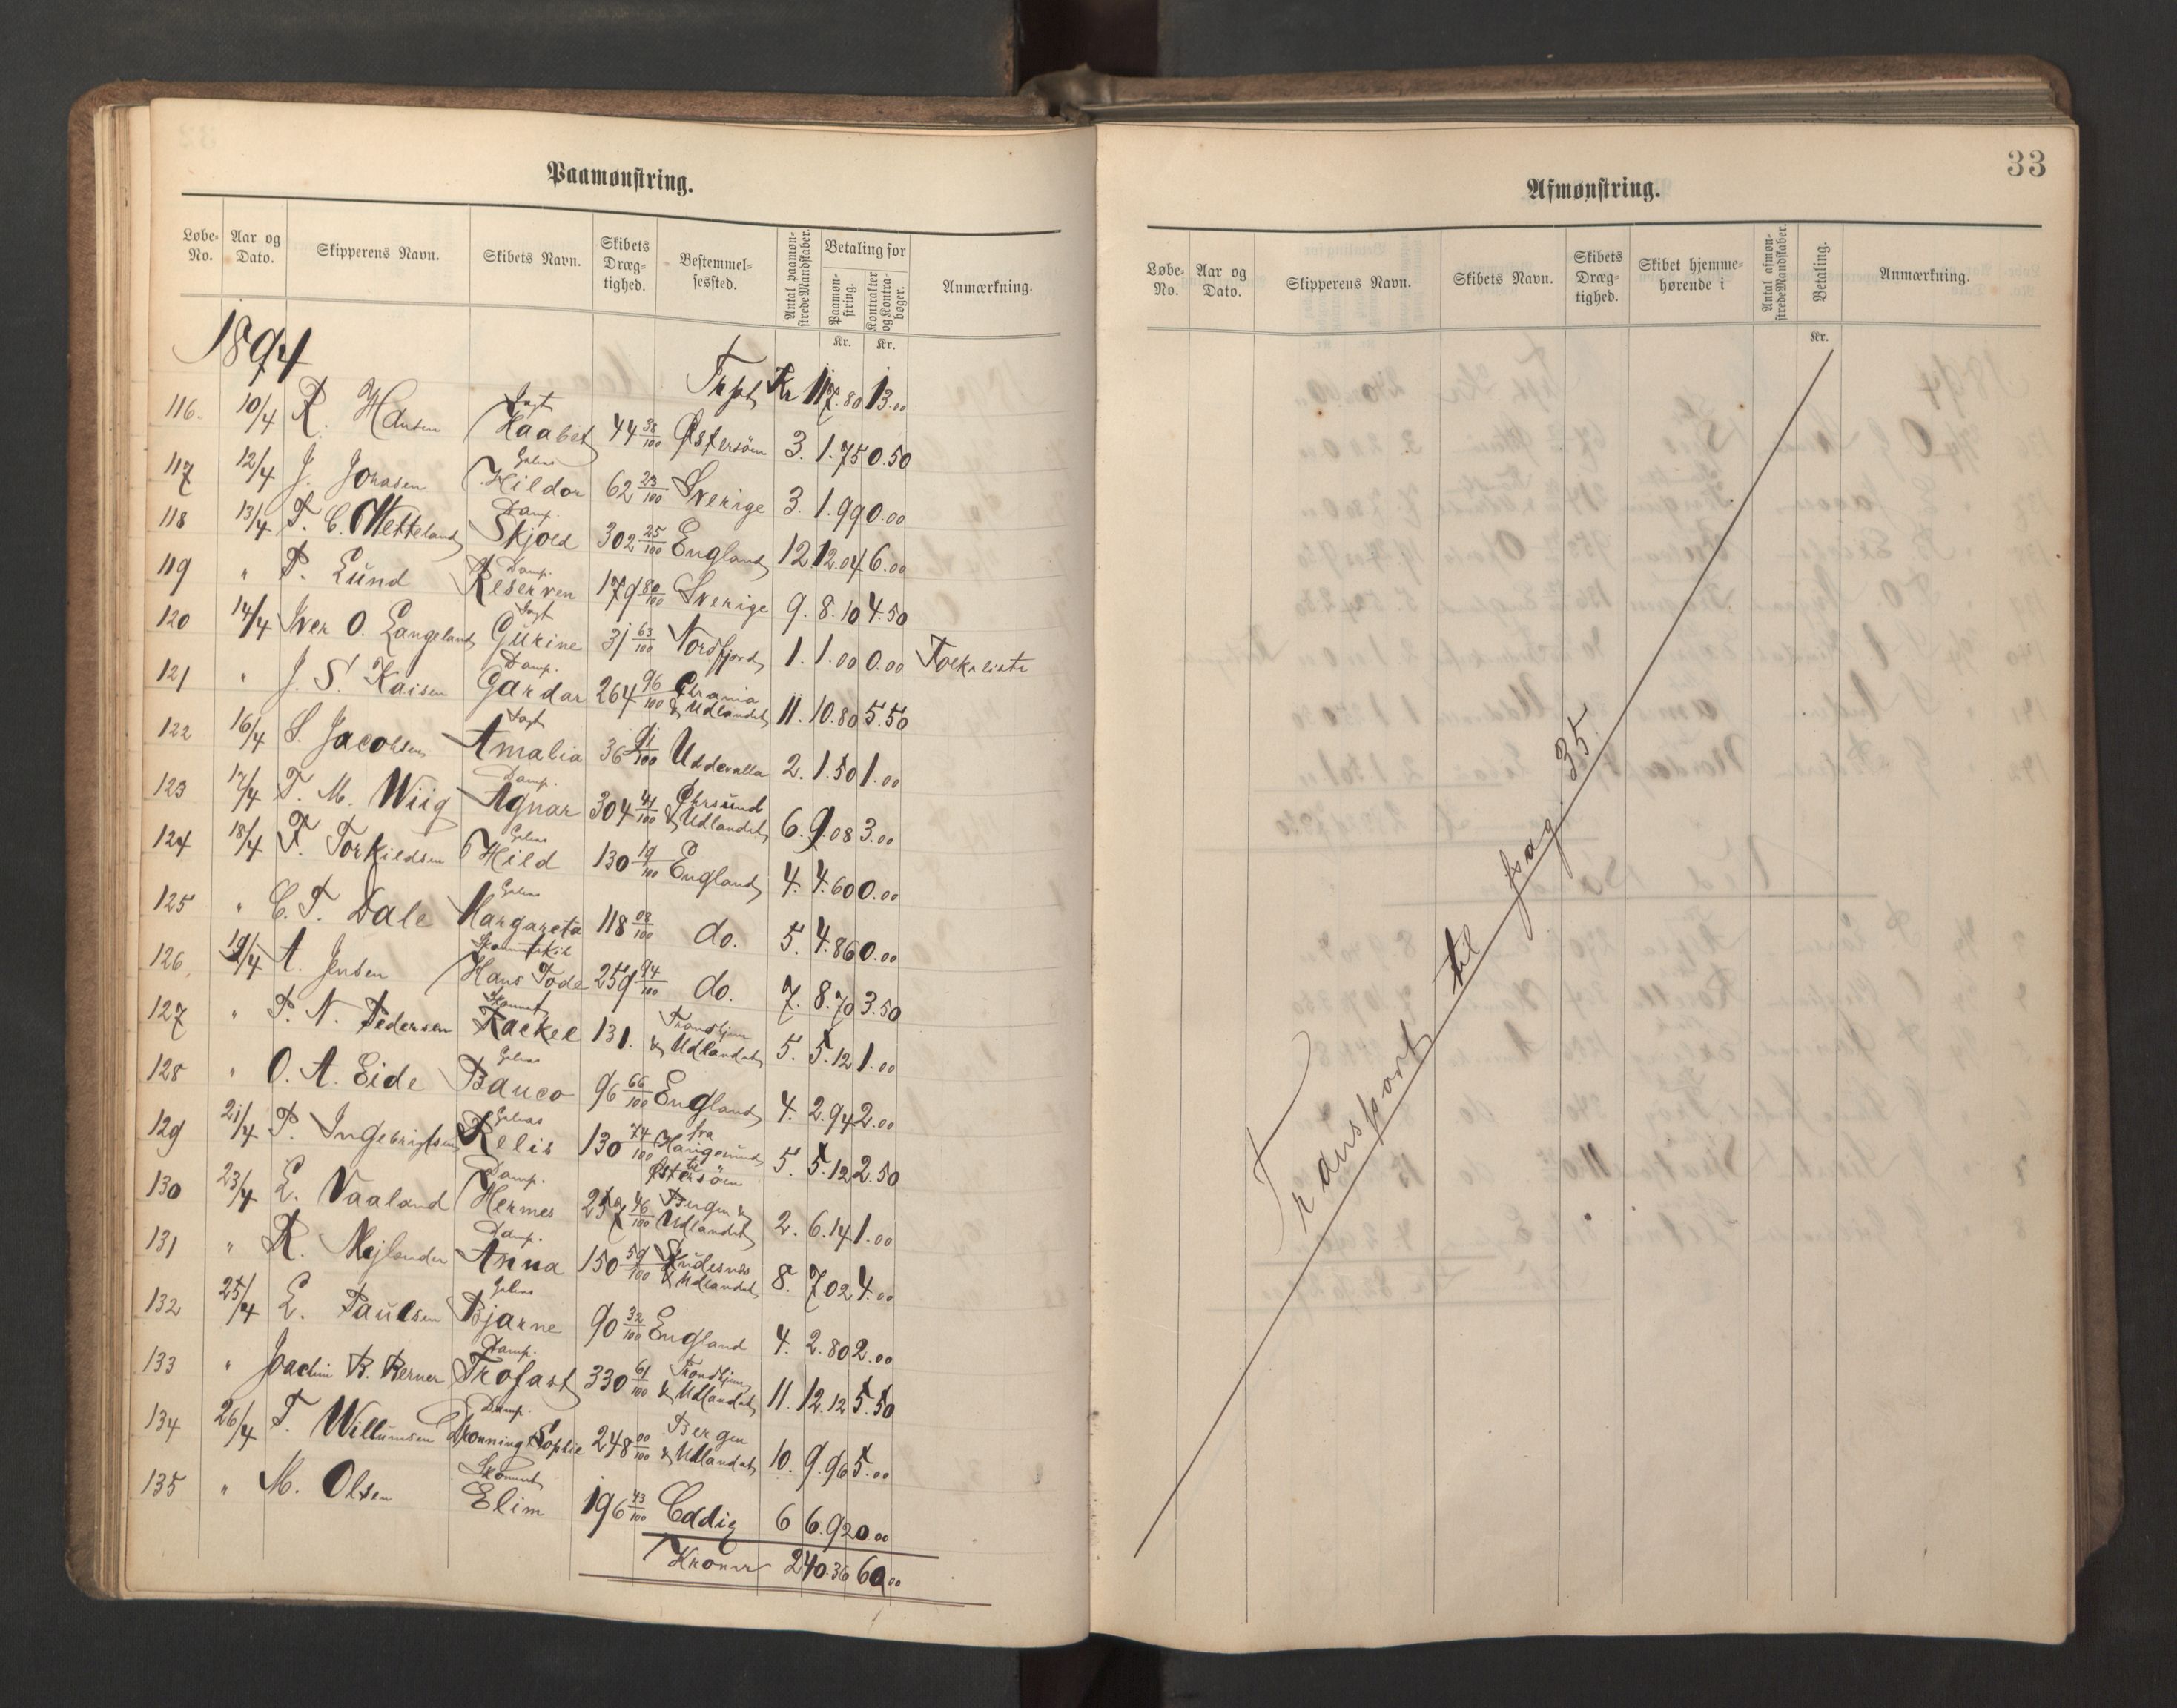 Paamønstring.
Løbe-No. Aar og Dato. Skipperens Navn. Skibets Navn. Skibets Dræg-tighed. Bestemmel-sessted. Antal paamøn-strede Mandskaber. Betaling for Paamøn-string. Kr. Kontrakter og Kontra-bøger. Kr. Anmærkning.
1894
Trpt Kr 117.80 13.00
116. 10/4 R. Hansen Jagt Haabet 44 38/100 Østersöen 3. 1.75 0.50
117 12/4 J. Jonasen Galeas Hildor 62 23/100 Sverige 3. 1.99 0.00
118 13/4 T. C. Wetteland Damp. Skjold 302 25/100 England 12 12.04 6.00
119 " P. Lund Damp. Reserven 179 80/100 Sverige 9. 8.10 4.50
120 14/4 Iver O. Langeland Jagt Gurine 31 63/100 Nordfjord 1. 1.00 0.00 Folkeliste
121 " J. S. Kaisen Damp. Gardar 264 96/100 Chrania & Udlandet 11. 10.80 5.50
122 16/4 S. Jacobsen Jagt Amalia 36 91/100 Uddevalla 2. 1.50 1.00
123 17/4 T. M. Wiig Damp. Agnar 304 41/100 Chrsund & Udlandet 6. 9.08 3.00
124 18/4 F. Torkildsen Galeas Hild 130 19/100 England 4. 4.60 0.00
125 " C. T. Dale Galeas Margareta 118 08/100 do. 5. 4.86 0.00
126. 19/4 A. Jensen Skonnertskib Hans Tode 259 94/100 do. 7. 8.70 3.50
127 " P. N. Pedersen Skonnert Rackel 131. Trondhjem & Udlandet 5. 5.12 1.00
128 " O. A. Eide Galeas Banco 96 66/100 England 4. 2.94 2.00
129 21/4 P. Ingebrigtsen Galeas Relis 130 74/100 fra Haugesund til Østersöen 5. 5.12 2.50
130 23/4 L. Vaaland Damp. Hermes 257 46/100 Bergen & Udlandet 2. 6.14 1.00
131 " R. Mejlænder Damp. Anna 150 59/100 Skudesnes & Udlandet 8. 7.02 4.00
132 25/4 L. Paulsen Galeas Bjarne 90 32/100 England 4. 2.80 2.00
133 " Joachim B. Berner Damp. Trofast 330 61/100 Trondhjem & Udlandet 11. 12.12 5.50
134 26/4 T. Willumsen Damp. Dronning Sophie 248 00/100 Bergen & Udlandet 10. 9.96 5.00
135 " M. Olsen Skonnert Elim 196 43/100 6 6.92 0.00
Kroner 240.36 60.00
33
Afmønstring.
Løbe-No. Aar og Dato. Skipperens Navn. Skibets Navn. Skibets Dræg-tighed. Skibet hjemme-hørende i Antal afmøn-strede Mandskaber. Betaling. Kr. Anmærkning.
Transport til pag. 35.